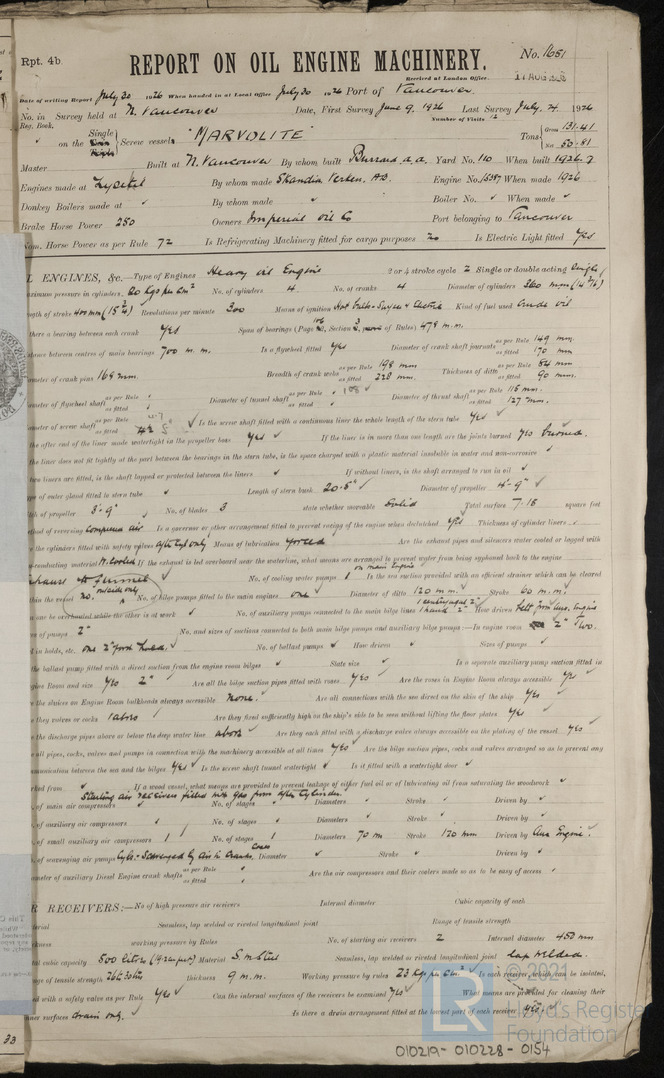 Rpt. 4b.
REPORT ON OIL ENGINE MACHINERY.
No. 1651
Received at London Office.
11 AUG 1926
Date of writing Report July 30 1926 When handed in at Local Office July 30 1926 Port of Vancouver
No. in Survey held at N. Vancouver Date, First Survey June 9, 1926 Last Survey July 24 1926
Reg. Book. Number of Visits 12
on the Single Twin Triple Screw vessel "MARVOLITE" Tons Gross 131.41 Net 50.81
Master Built at N. Vancouver By whom built Burrard d.d. Yard No. 110 When built 1926.7
Engines made at Lysekil By whom made Skandia Verken, A.B. Engine No. When made 1926
Donkey Boilers made at ✓ By whom made ✓ Boiler No. ✓ When made ✓
Brake Horse Power 250 Owners Imperial Oil Co Port belonging to Vancouver
Nom. Horse Power as per Rule 72 Is Refrigerating Machinery fitted for cargo purposes no Is Electric Light fitted Yes
L ENGINES, &c.—Type of Engines Heavy oil Engine 2 or 4 stroke cycle 2 Single or double acting Single
aximum pressure in cylinders 20 kgs per cm² No. of cylinders 4 No. of cranks 4 Diameter of cylinders 360 mm
ength of stroke 400 mm (15¾) Revolutions per minute 300 Means of ignition Kind of fuel used Crude oil
there a bearing between each crank Yes Span of bearings (Page Section of Rules) 478 m.m.
stance between centres of main bearings 700 m.m. Is a flywheel fitted Yes Diameter of crank shaft journals as per Rule 149 mm. as fitted 170 mm
ameter of crank pins 168 mm. Breadth of crank webs as per Rule 198 mm. as fitted 228 mm. Thickness of ditto as per Rule 84 mm as fitted 90 mm.
ameter of flywheel shaft as per Rule as fitted Diameter of tunnel shaft as per Rule as fitted Diameter of thrust shaft as per Rule 115 mm. as fitted 127 mm.
ameter of screw shaft as per Rule as fitted Is the screw shaft fitted with a continuous liner the whole length of the stern tube Yes
the after end of the liner made watertight in the propeller boss Yes If the liner is in more than one length are the joints burned Yes burned.
the liner does not fit tightly at the part between the bearings in the stern tube, is the space charged with a plastic material insoluble in water and non-corrosive ✓
two liners are fitted, is the shaft lapped or protected between the liners ✓ If without liners, is the shaft arranged to run in oil ✓
pe of outer gland fitted to stern tube ✓ Length of stern bush 20.5" Diameter of propeller 4'-9"
ch of propeller 3'-9" No. of blades 3 state whether moveable Solid Total surface 7.18 square feet
thod of reversing Compressed air Is a governor or other arrangement fitted to prevent racing of the engine when declutched Yes Thickness of cylinder liners ✓
e the cylinders fitted with safety valves after cyl only Means of lubrication forced Are the exhaust pipes and silencers water cooled or lagged with
n-conducting material W. cooled If the exhaust is led overboard near the waterline, what means are arranged to prevent water being syphoned back to the engine
exhaust to funnel No. of cooling water pumps 1 on main Engine Is the sea suction provided with an efficient strainer which can be cleared
thin the vessel no. outside only No. of bilge pumps fitted to the main engines one Diameter of ditto 120 mm. Stroke 60 m.m.
n one be overhauled while the other is at work ✓ No. of auxiliary pumps connected to the main bilge lines How driven belt from aux. Engine
es of pumps 2" No. and sizes of suctions connected to both main bilge pumps and auxiliary bilge pumps:—In engine room 2" Two.
d in holds, etc. one 2" ford hold. No. of ballast pumps ✓ How driven ✓ Sizes of pumps ✓
the ballast pump fitted with a direct suction from the engine room bilges ✓ State size ✓ Is a separate auxiliary pump suction fitted in
gine Room and size Yes 2" Are all the bilge suction pipes fitted with roses Yes Are the roses in Engine Room always accessible Yes
e the sluices on Engine Room bulkheads always accessible None. Are all connections with the sea direct on the skin of the ship Yes
e they valves or cocks Are they fixed sufficiently high on the ship's side to be seen without lifting the floor plates Yes
e the discharge pipes above or below the deep water line above Are they each fitted with a discharge valve always accessible on the plating of the vessel Yes
e all pipes, cocks, valves and pumps in connection with the machinery accessible at all times Yes Are the bilge suction pipes, cocks and valves arranged so as to prevent any
mmunication between the sea and the bilges Yes Is the screw shaft tunnel watertight ✓ Is it fitted with a watertight door ✓
rked from ✓ If a wood vessel, what means are provided to prevent leakage of either fuel oil or of lubricating oil from saturating the woodwork ✓
Starting air receivers filled with gas from after cylinder.
of main air compressors ✓ No. of stages ✓ Diameters ✓ Stroke ✓ Driven by ✓
of auxiliary air compressors ✓ No. of stages ✓ Diameters ✓ Stroke ✓ Driven by ✓
of small auxiliary air compressors 1 No. of stages 1 Diameters 70 m Stroke 120 mm Driven by Aux Engine.
of scavenging air pumps Cyls. Scavenged by Air in Crank Cases Diameter ✓ Stroke ✓ Driven by ✓
ameter of auxiliary Diesel Engine crank shafts as per Rule ✓ as fitted ✓ Are the air compressors and their coolers made so as to be easy of access ✓
R RECEIVERS:—No of high pressure air receivers Internal diameter Cubic capacity of each
terial Seamless, lap welded or riveted longitudinal joint Range of tensile strength
ickness working pressure by Rules No. of starting air receivers 2 Internal diameter 450 mm
tal cubic capacity 500 liters Material S.m Steel Seamless, lap welded or riveted longitudinal joint Lap welded.
nge of tensile strength thickness 9 m.m. Working pressure by rules 23 kgs per cm² Is each receiver, which can be isolated,
ed with a safety valve as per Rule Yes Can the internal surfaces of the receivers be examined Yes What means are provided for cleaning their
nner surfaces drain only. Is there a drain arrangement fitted at the lowest part of each receiver Yes.
© 2021
LR
Lloyd's Register
Foundation
010219-010228-0154
33